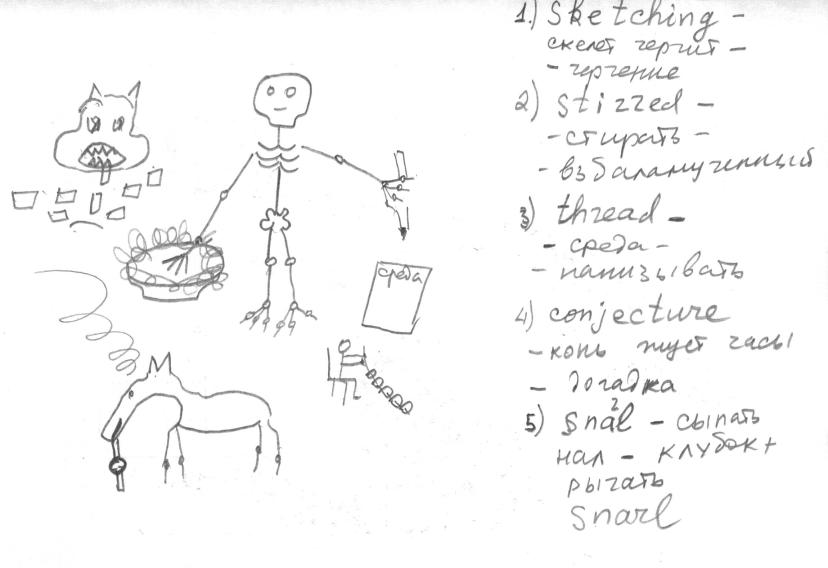 среда
1.) Sketching -
скелет чертит -
- черчение
2) stizzed -
- стирать -
- взбаламученный
3) thread -
- среда -
- нанизывать
4) conjecture
- конь жует часы
- догадка
5) snal - сыпать
2
нал - клубок +
рычать
snarl